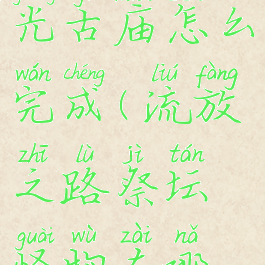 光古庙怎么
wán chéng liú fàng
完成(流放
zhī lù jì tán
之路祭坛
guài wù zài nǎ
怪物在哪